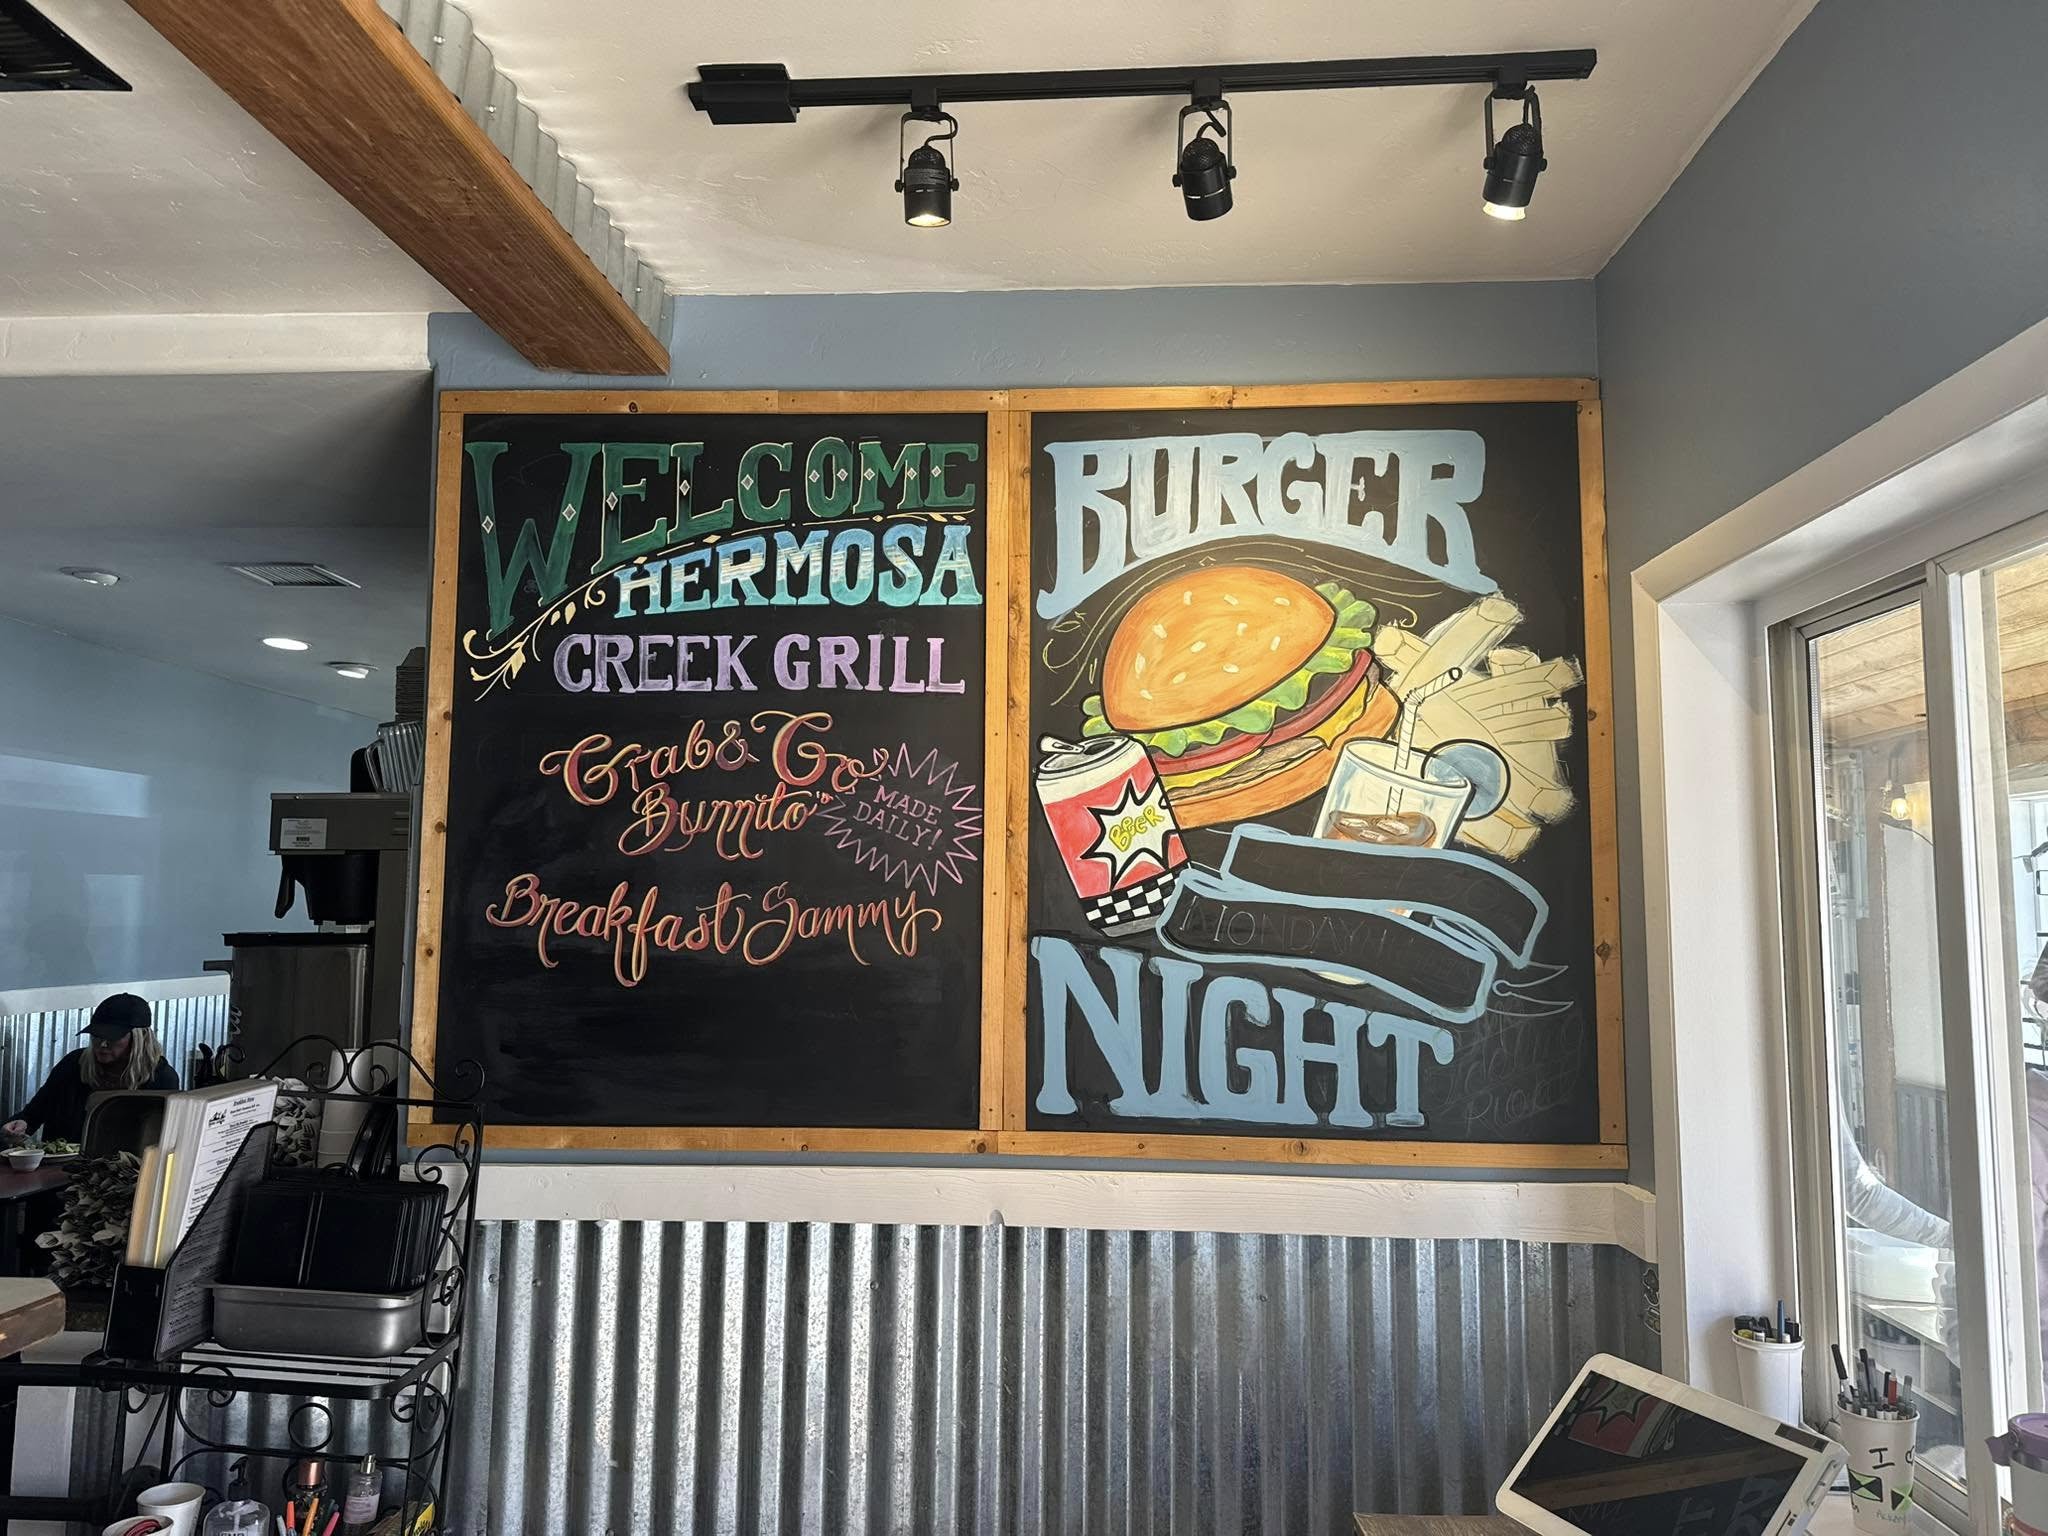 WELCOME
HERMOSA
CREEK GRILL
Grab & Go
Burrito's
MADE
DAILY!
Breakfast Sammy
BURGER
BEER
MONDAY
NIGHT